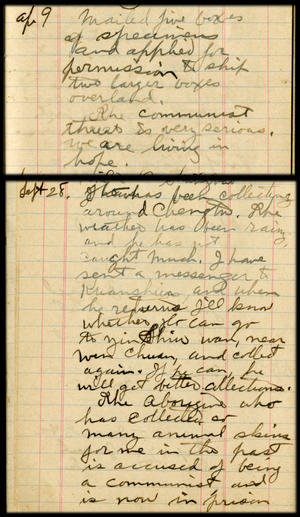 Ap 9 Mailed five boxes
of specimens
and applied for
permission to ship
two larger boxes
overland.
The communist
threat is very serious.
We are living in
hope.
Sept 28. has been collecting
around Chengtu. The
weather has been rainy
and he has not
caught much. I have
sent a messenger to
and when
he returns I'll know
whether Ho can go
to yin wan, near
wen chuan, and collect
again. If he can, he
will get better collections.
The Aborigine who
has collected so
many animal skins
for me in the past
is accused of being
a communist and
is now in prison